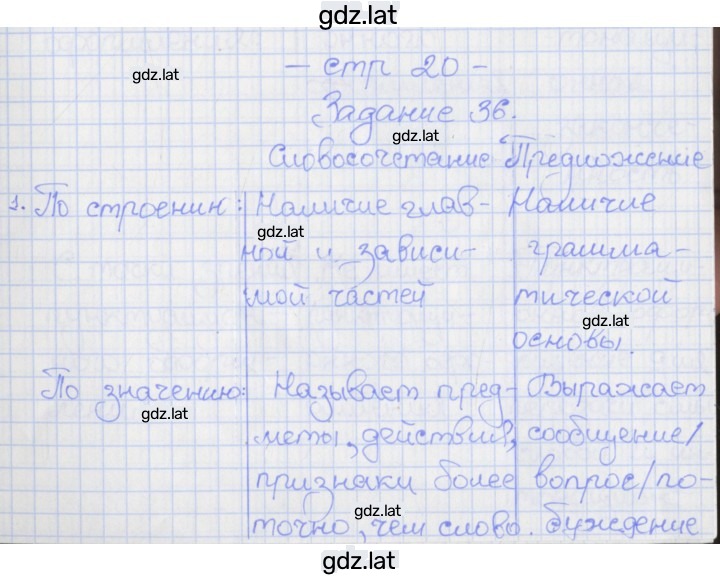 gdz.lat
- стр 20 -
gdz.lat
Задание 36.
gdz.lat
Словосочетание Предложение
1. По строению: Наличие глав- Наличие
gdz.lat
ной и зависи- грамма-
мой частей тической
gdz.lat
основы.
По значению: Называет пред- Выражает
gdz.lat
меты, действия, сообщение/
признаки более вопрос/по-
gdz.lat
точно, чем слово. буждение
gdz.lat